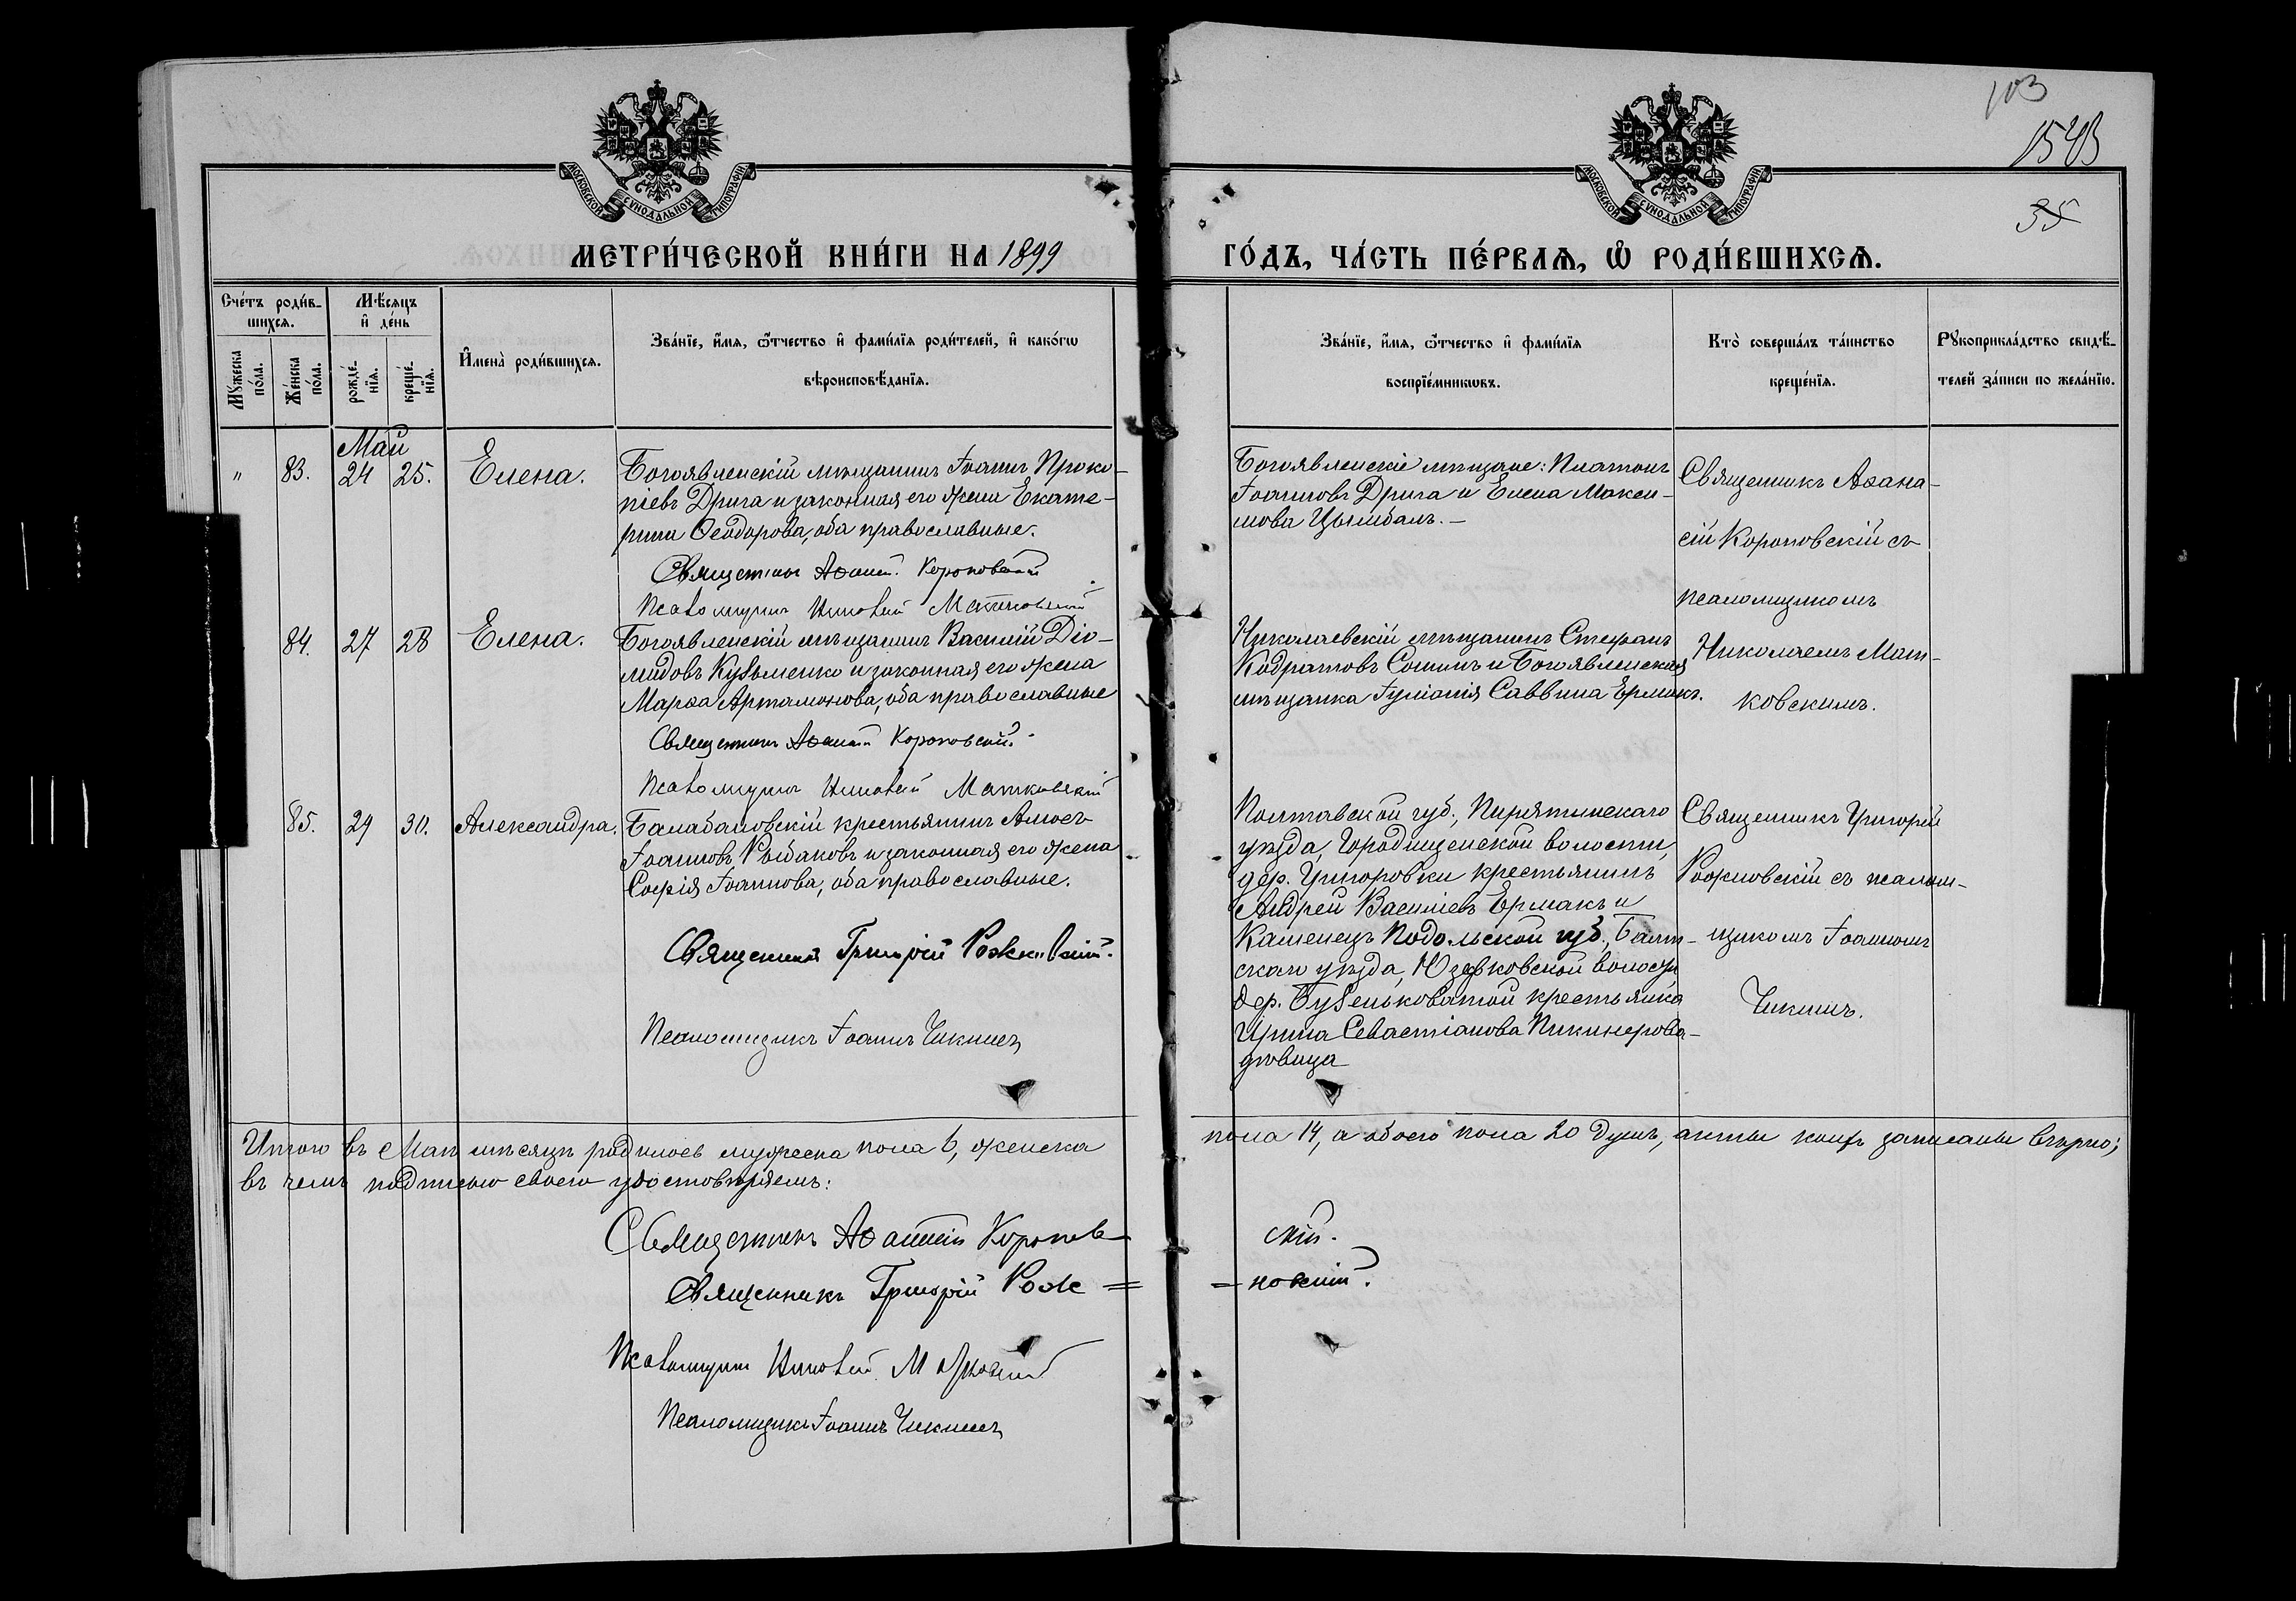 103
1543
35
МОСКОВСКОЙ СѴНОДАЛЬНОЙ ТИПОГРАФІИ
МОСКОВСКОЙ СѴНОДАЛЬНОЙ ТИПОГРАФІИ
МЕТРИ́ЧЕСКОЙ КНИ́ГИ НА 1899
ГО́ДЪ, ЧА́СТЬ ПЕ́РВАѦ, Ѽ РОДИ́ВШИХСѦ.
Сче́тъ роди́в-
шихсѧ.
Мꙋ́жеска
по́ла.
Же́нска
по́ла.
Мѣ́сѧцъ
и҆ де́нь
рожде́-
нїѧ.
креще́-
нїѧ.
И҆мена̀ роди́вшихсѧ.
Зва́нїе, и҆́мѧ, ѻ҆́тчество и҆ фами́лїѧ роди́телей, и҆ како́гѡ
вѣроисповѣ́данїѧ.
Зва́нїе, и҆́мѧ, ѻ҆́тчество и҆ фами́лїѧ
воспрїе́мникѡвъ.
Кто̀ соверша́лъ та́инство
креще́нїѧ.
Рꙋкоприкла́дство свидѣ́-
телей за́писи по жела́нїю.
Май
" 83. 24 25. Елена.
Богоявленскій мѣщанинъ Іоаннъ Проко-
піевъ Дрига и законная его жена Екате-
рина Ѳеодорова, оба православные.
Священникъ Аѳанасій Короповскій
Псаломщикъ Николай Матковскій
Богоявленскіе мѣщане: Платонъ
Іоанновъ Дрига и Елена Макси-
мова Цымбалъ.-
Священникъ Аѳана-
сій Короповскій съ
псаломщикомъ
Николаемъ Мат-
ковскимъ.
84. 27 28 Елена.
Богоявленскій мѣщанинъ Василій Діо-
мидовъ Кузьменко и законная его жена
Марѳа Артамонова, оба православные
Священникъ Аѳанасій Короповскій.
Псаломщикъ Николай Матковскій
Николаевскій мѣщанинъ Стефанъ
Кодратовъ Сонинъ и Богоявленская
мѣщанка Іуліанія Саввина Ермакъ.
85. 29 30. Александра.
Балабановскій крестьянинъ Амосъ
Іоанновъ Рыбаковъ и законная его жена
Софія Іоаннова, оба православные.
Священникъ Григорій Рожковскій.
Псаломщикъ Іоаннъ Чикинъ
Полтавской губ., Пирятинскаго
уѣзда, Городищенской волости,
дер. Григоровки крестьянинъ
Андрей Василіевъ Ермакъ и
Каменецъ Подольской губ., Балт-
скаго уѣзда, Юзефковской волости
дер. крестьянка
Ирина Севастіанова Пикинерова-
дѣвица
Священникъ Григорій
Рожновскій съ псалом-
щикомъ Іоанномъ
Чикинъ.
Итого въ Маѣ мѣсяцѣ родилось мужеска пола 6, женска
пола 14, а обоего пола 20 душъ, акты коихъ записаны вѣрно;
въ чемъ подписью своею удостовѣряемъ:
Священникъ Аѳанасій Коропов-
скій.
Священникъ Григорій Рож =
= новскій.
Псаломщикъ Николай Матковскій
Псаломщикъ Іоаннъ Чикинъ